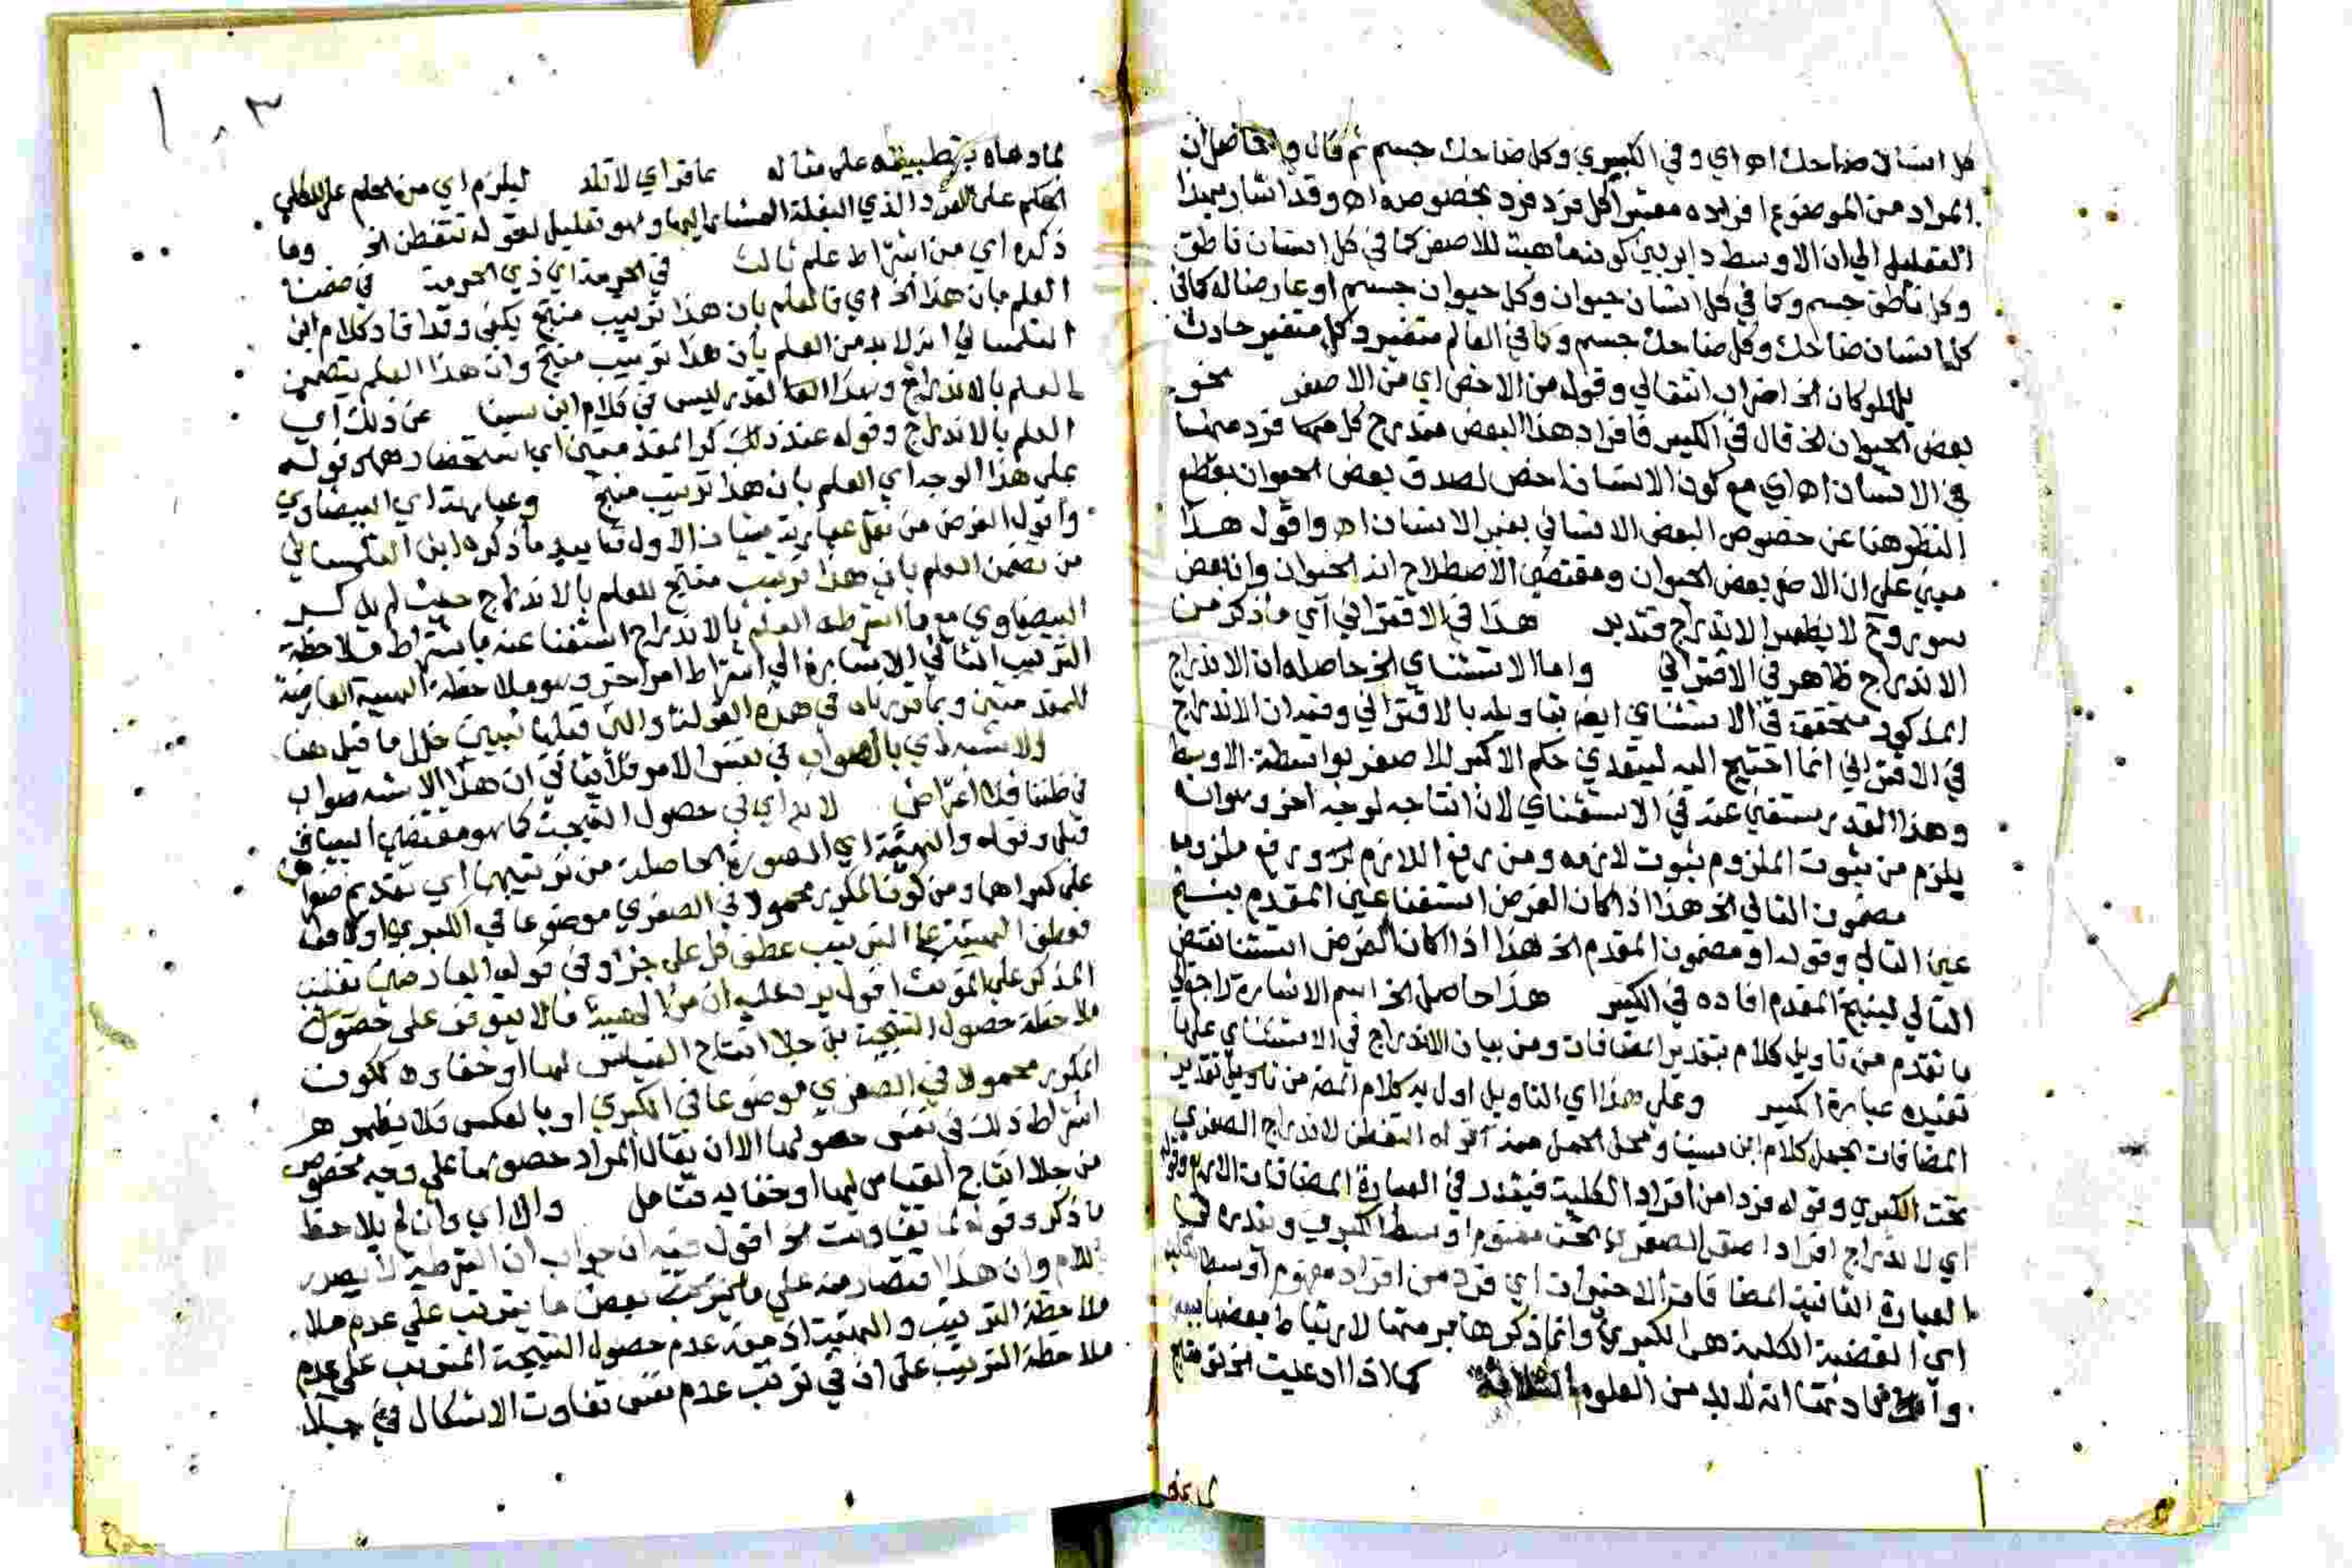 كل انسان ضاحك اه اي وفي الكبرى وكل ضاحك جسم ثم قال والحاصل ان
المراد من الموضوع افراده معتبرا كل فرد فرد بخصوصه اه وقد اشار بهذا
التعليل الي ان الاوسط داير بين كونه ماهية للاصغر كما في كل انسان ناطق
وكل ناطق جسم وكما في كل انسان حيوان وكل حيوان جسم او عارضا له كما في
كل انسان ضاحك وكل ضاحك جسم وكما في العالم متغير وكل متغير حادث
بل لو كان الخ اضراب انتقالي وقوله من الاخص اي من الاصغر نحو
بعض الحيوان الخ قال في الكبير فافراد هذا البعض مندرج كل منها فرد منها
في الانسان اه اي مع كون الانسان اخص لصدق بعض الحيوان بقطع
النظر هنا عن خصوص البعض الانساني بغير الانسان اه واقول هذا
مبني على ان الاصغر بعض الحيوان ومقتضى الاصطلاح انه الحيوان وان بعض
سور وح لا يظهر الاندراج فتدبر هذا في الاقتراني اي ما ذكر من
الاندراج ظاهر في الاقتراني واما الاستثناي الخ حاصله ان الاندراج
المذكور متحقق في الاستثناي ايضا بتاويله بالاقتراني وفيه ان الاندراج
في الاقتراني انما احتيج اليه ليتعدي حكم الاكبر للاصغر بواسطة الاوسط
وهذا القدر مستغني عنه في الاستثناي لان انتاجه لوجه اخر وهو انه
يلزم من ثبوت الملزوم ثبوت لازمه ومن رفع اللازم رفع ملزومه
مضمون التالي الخ هذا اذا كان الغرض استثنا عين المقدم ينتج
عين التالي وقوله او مضمون المقدم الخ هذا اذا كان الغرض استثنا نقيض
التالي لينتج المقدم افاده في الكبير هذا حاصل الخ اسم الاشارة راجع الي
ما تقدم من تاويل كلام بتقدير المضافات ومن بيان الاندراج في الاستثناي على ما
تفيده عبارة الكبير وعلى هذا اي التاويل اول به كلام المص من تاويل تقدير
المضافات يحمل كلام ابن سينا ومحل الحمل منه قوله التفطن لاندراج الصغرى
تحت الكبرى وقوله فردا من افراد الكلية فيقدر في العبارة المضافات الاربع وقوله
اي لاندراج افراد اصغر الصغرى تحت مفهوم اوسط الكبرى ويقدر في
العبارة الثانية المضافات الاخيرات اي فرد من افراد مفهوم اوسط الكلية
اي القضية الكلية هى الكبرى وانما ذكرها برمتها لارتباط بعضها ببعض
فما دعتنا انه لا بد من العلوم الثلاثة كما اذا ادعيت الخ
بما دهاه بتطبيقه على مثاله عاقر اي لا تلد ليلزم اي من الحكم على الكلي
الحكم على الفرد الذي البغلة المشار اليها وهو تعليل لقوله تتفطن الخ وما
ذكره اي من اشتراط علم ثالث في الحرمة اي ذي الحرمة في ضمننا
العلم بان هذا الخ اي فالعلم بان هذا ترتيب منتج يكفى وقد افاد كلام ابن
التلمساني انه لا بد من العلم بأن هذا ترتيب منتج وان هذا العلم يتضمن
العلم بالاندراج وهذا القدر ليس في كلام ابن سينا عن ذلك اي
العلم بالاندراج وقوله عند ذلك ذكر المقدمتين اي استحضارهما وقوله
على هذا الوجه اي العلم بان هذا ترتيب منتج وعبارته اي البيضاوي
واقول الغرض من نقل عبارته شيئان الاول تاييد ما ذكره ابن التلمساني
من تضمن العلم بان هذا ترتيب منتج للعلم بالاندراج حيث لم يذكر
البيضاوي مع ما اشترطه العلم بالاندراج استغنا عنه باشتراط ملاحظة
الترتيب الثاني الاشارة الي اشتراط امر اخر وهو ملاحظة الهيئة العارضة
للمقدمتين وبما قررناه في هذه القولة والتى قبلها تبين خلل ما قيل هنا
والاشبه اي بالصواب في نفس الامر فلا ينافي ان هذا الاشبه صواب
في ظننا فلا اعتراض لا بد اي في حصول النتيجة كما هو مقتضى السياق
قبله وقوله والهيئة اي الصورة الحاصلة من ترتيبها اي تقديم صغراها
على كبراهما ومن كون المكرر محمولا في الصغرى موضوعا في الكبرى او
فعطف الهيئة على الترتيب عطف كل على جزا وفي قوله العارضين تغليب
المذكر على المؤنث اقول يرد عليه ان من الهيئة مالا يتوقف على حصول
ملاحظة حصول النتيجة بل جلا انتاج القياس لها او خفاؤه ككون
المكرر محمولا في الصغرى موضوعا في الكبرى او بالعكس فلا يظهر
اشتراط ذلك في نفس حصولها الا ان يقال المراد حصولها على وجه مخصوص
من جلا انتاج القياس لها او خفايه فتامل والا اي وان لم يلاحظ
ما ذكر وقوله لما تفاوتت الخ اقول فيه ان جواب ان الشرطية لا يصدر
باللام وان هذا اقتصار منه على بعض ما يترتب على عدم ملا
ملاحظة الترتيب والهيئة اذ منه عدم حصول النتيجة المترتب على عدم
ملاحظة الترتيب على ان في ترتب عدم نفس تفاوت الاشكال في جلا